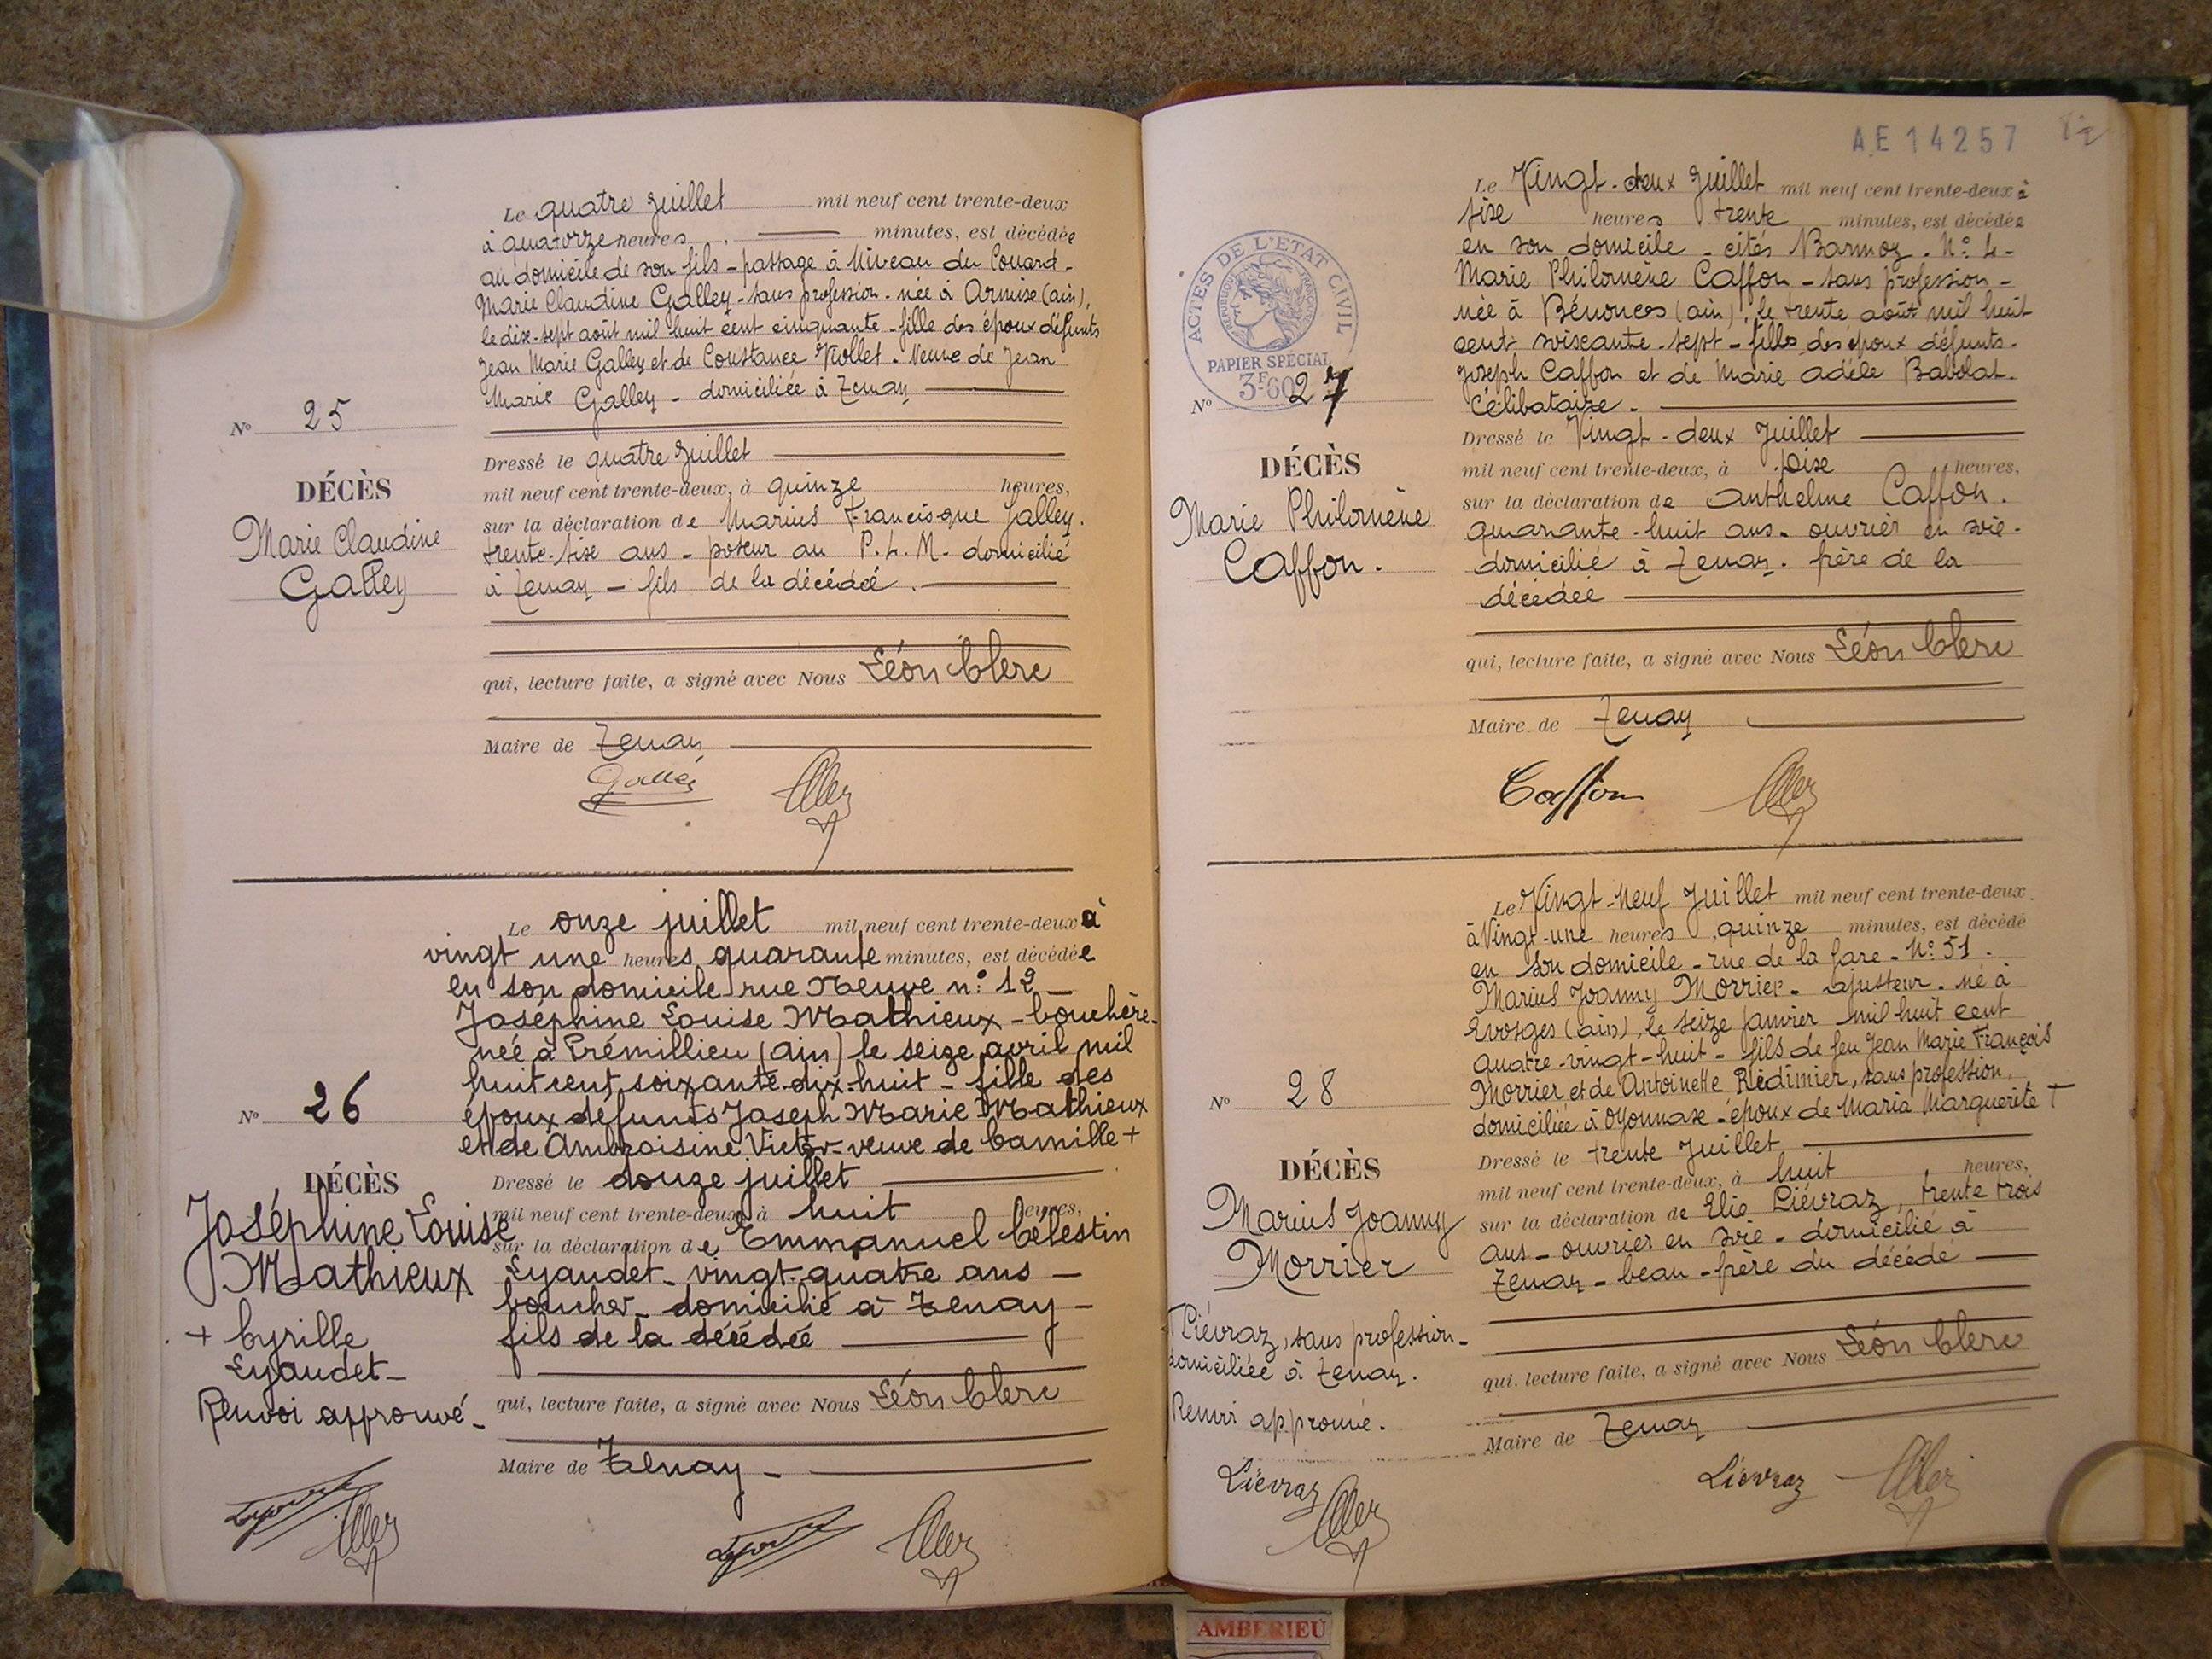 Le quatre Juillet mil neuf cent trente-deux
à quatorze heures minutes, est décédée
au domicile de son fils - passage à Niveau du Couard -
Marie Claudine Galley - sans profession - née à Armise (ain),
le dix-sept août mil huit cent cinquante - fille des époux défunts
Jean Marie Galley et de Constance Viollet - Veuve de Jean
Marie Galley - domiciliée à Tenay
N° 25
DÉCÈS
Marie Claudine
Galley
Dressé le quatre Juillet
mil neuf cent trente-deux, à quinze heures,
sur la déclaration de Marius Francisque Galley.
trente-six ans - poseur au P.L.M. domicilié
à Tenay - fils de la décédée.
qui, lecture faite, a signé avec Nous Léon Clerc
Maire de Tenay
Le onze juillet mil neuf cent trente-deux à
vingt une heures quarante minutes, est décédée
en son domicile rue Neuve n° 12 -
Joséphine Louise Mathieux - bouchère -
née à Prémillieu (Ain) le seize avril mil
huit cent soixante-dix-huit - fille des
époux défunts Joseph Marie Mathieux
et de Ambroisine Victor - veuve de Camille +
N° 26
DÉCÈS
Joséphine Louise
Mathieux
+ Cyrille
Lyaudet -
Renvoi approuvé -
Dressé le douze juillet
mil neuf cent trente-deux, à huit heures,
sur la déclaration de Emmanuel Célestin
Lyaudet - vingt-quatre ans -
boucher - domicilié à Tenay -
fils de la décédée
qui, lecture faite, a signé avec Nous Léon Clerc
Maire de Tenay -
AE 14257
Le Vingt-deux Juillet mil neuf cent trente-deux à
six heures trente minutes, est décédée
en son domicile - cités Barmoz - N° 4 -
Marie Philomène Caffon - sans profession -
née à Bénonces (ain), le trente août mil huit
cent soixante-sept - fille des époux défunts -
Joseph Caffon et de Marie Adèle Babolat.
Célibataire.
ACTES DE L'ETAT CIVIL
REPUBLIQUE FRANÇAISE
PAPIER SPÉCIAL
3F60
N° 27
DÉCÈS
Marie Philomène
Caffon.
Dressé le Vingt-deux Juillet
mil neuf cent trente-deux, à dix heures,
sur la déclaration de Anthelme Caffon.
quarante-huit ans - ouvrier en soie -
domicilié à Tenay. frère de la
décédée
qui, lecture faite, a signé avec Nous Léon Clerc
Maire de Tenay
Caffon
Le Vingt-Neuf Juillet mil neuf cent trente-deux
à Vingt-une heures quinze minutes, est décédé
en son domicile - rue de la Gare - N° 51.
Marius Joanny Morrier - ajusteur - né à
Evosges (ain), le seize janvier mil huit cent
quatre-vingt-huit - fils de feu Jean Marie François
Morrier et de Antoinette Rédimier, sans profession,
domiciliée à Oyonnax - époux de Maria Marguerite T
N° 28
DÉCÈS
Marius Joanny
Morrier
T Liévraz, sans profession -
domiciliée à Tenay.
Renvoi approuvé.
Dressé le trente Juillet
mil neuf cent trente-deux, à huit heures,
sur la déclaration de Elie Liévraz, trente trois
ans - ouvrier en soie - domicilié à
Tenay - beau-frère du décédé
qui, lecture faite, a signé avec Nous Léon Clerc
Maire de Tenay
Liévraz
Liévraz
AMBERIEU